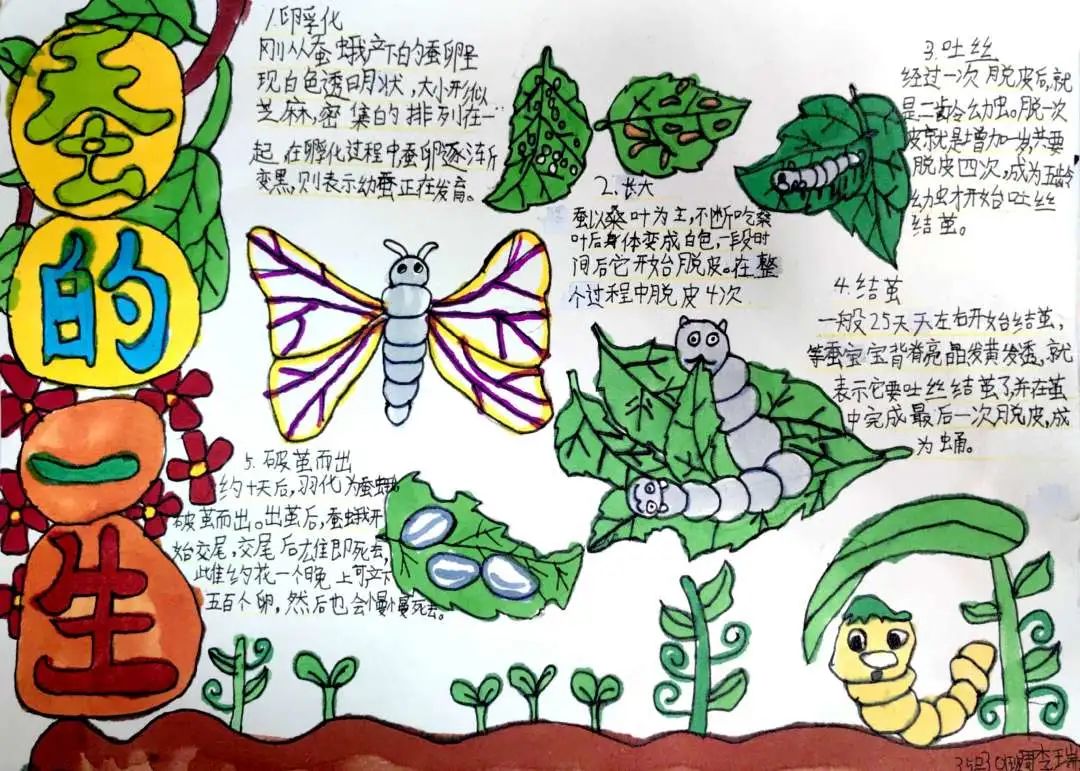 蚕的一生
1.卵孵化
刚从蚕蛾产下的蚕卵呈
现白色透明状,大小形似
芝麻,密集的排列在一
起,在孵化过程中蚕卵逐渐
变黑,则表示幼蚕正在发育。
2.长大
蚕以桑叶为主,不断吃桑
叶后身体变成白色,一段时
间后它开始脱皮。在整
个过程中脱皮4次
3.吐丝
经过一次脱皮后,就
是二龄幼虫。脱一次
皮就是增加一岁,共要
脱皮四次,成为五龄
幼虫才开始吐丝
结茧。
4.结茧
一般25天天左右开始结茧,
等蚕宝宝背脊亮晶发黄发透,就
表示它要吐丝结茧了,并在茧
中完成最后一次脱皮,成
为蛹。
5.破茧而出
约十天后,羽化为蚕蛾
破茧而出。出茧后,蚕蛾开
始交尾,交尾后雄即死去,
雌约花一个晚上可产下
五百个卵,然后也会慢慢死去。